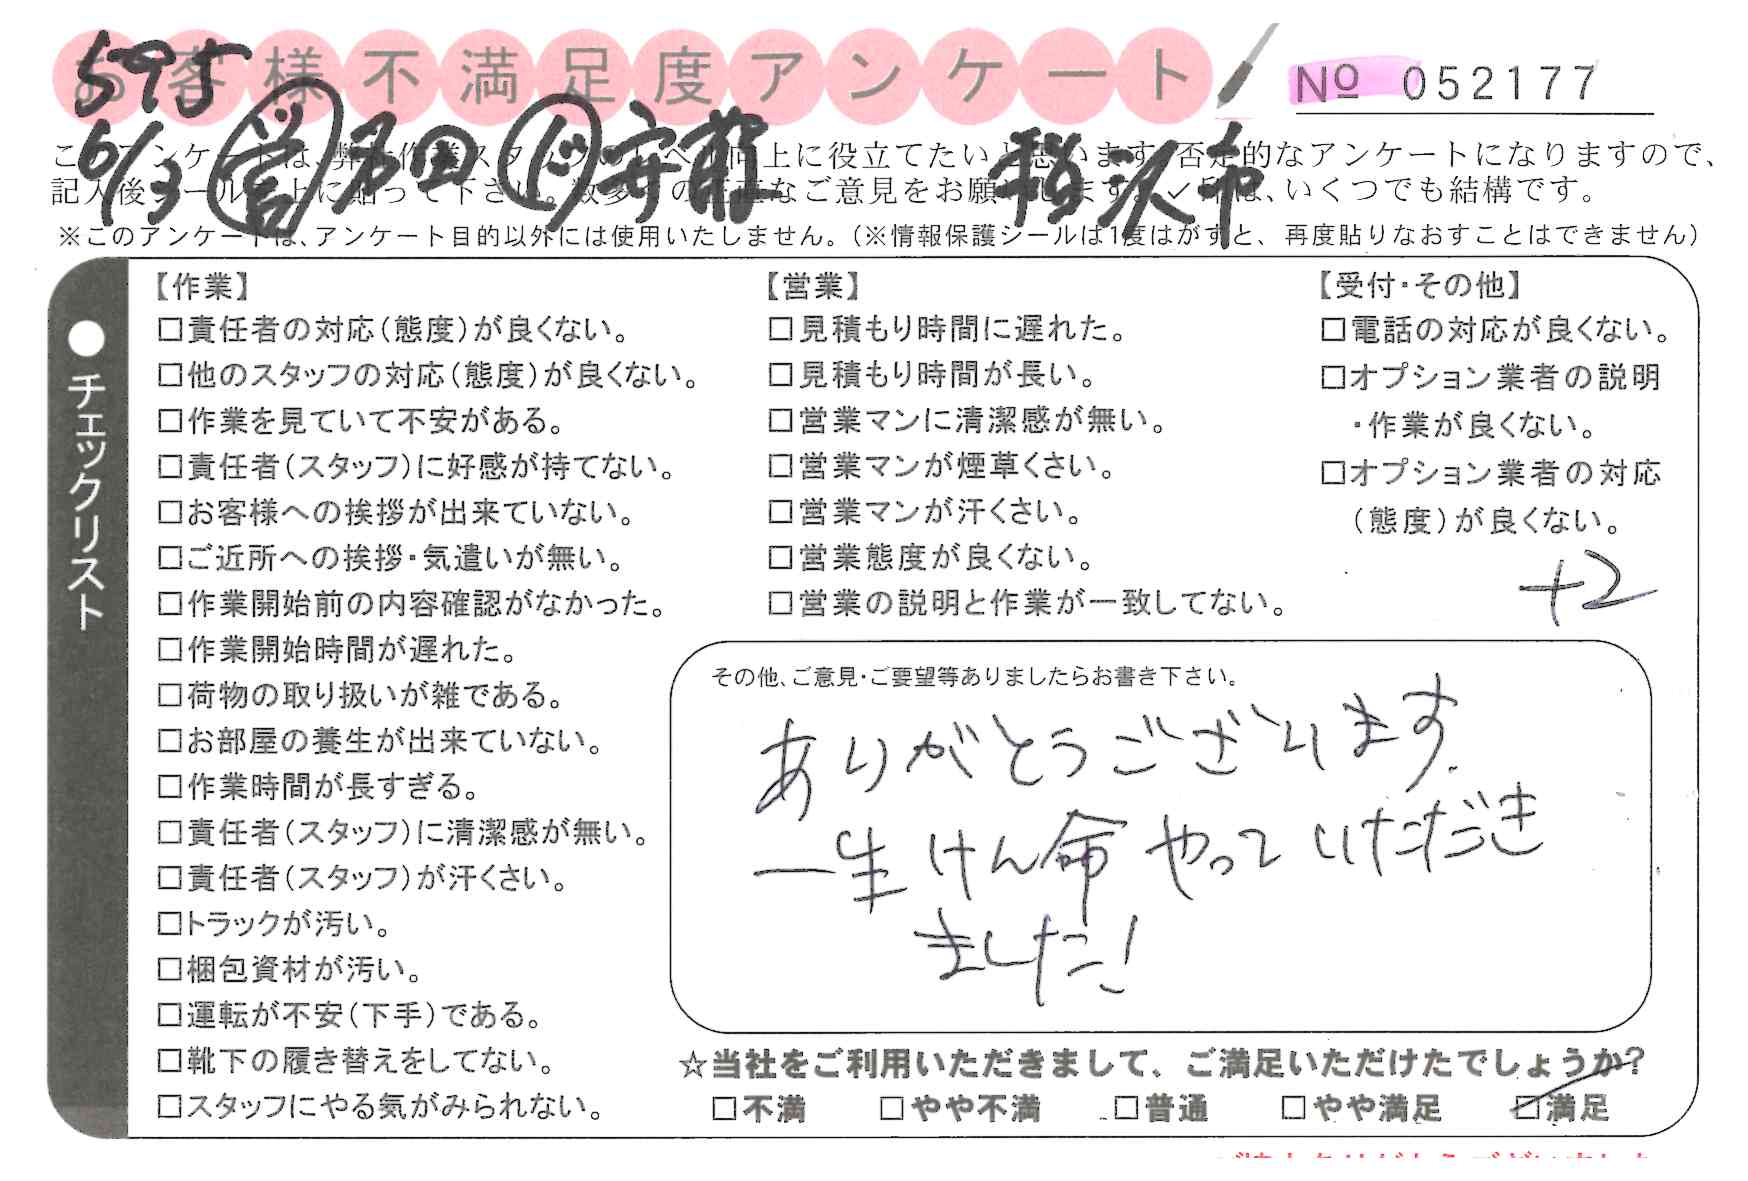 お客様不満足度アンケート
№ 052177
595
6/3 営 戸田 ド 安藤 稲沢市
このアンケートは、弊社作業スタッフのレベル向上に役立てたいと思います。否定的なアンケートになりますので、
記入後シールを上に貼って下さい。数多くの正直なご意見をお願いします。✓印は、いくつでも結構です。
※このアンケートは、アンケート目的以外には使用いたしません。(※情報保護シールは1度はがすと、再度貼りなおすことはできません)
●チェックリスト
【作業】
□責任者の対応(態度)が良くない。
□他のスタッフの対応(態度)が良くない。
□作業を見ていて不安がある。
□責任者(スタッフ)に好感が持てない。
□お客様への挨拶が出来ていない。
□ご近所への挨拶・気遣いが無い。
□作業開始前の内容確認がなかった。
□作業開始時間が遅れた。
□荷物の取り扱いが雑である。
□お部屋の養生が出来ていない。
□作業時間が長すぎる。
□責任者(スタッフ)に清潔感が無い。
□責任者(スタッフ)が汗くさい。
□トラックが汚い。
□梱包資材が汚い。
□運転が不安(下手)である。
□靴下の履き替えをしてない。
□スタッフにやる気がみられない。
【営業】
□見積もり時間に遅れた。
□見積もり時間が長い。
□営業マンに清潔感が無い。
□営業マンが煙草くさい。
□営業マンが汗くさい。
□営業態度が良くない。
□営業の説明と作業が一致してない。
【受付・その他】
□電話の対応が良くない。
□オプション業者の説明
・作業が良くない。
□オプション業者の対応
(態度)が良くない。
+2
その他、ご意見・ご要望等ありましたらお書き下さい。
ありがとうございます。
一生けん命やっていただき
ました!
☆当社をご利用いただきまして、ご満足いただけたでしょうか?
□不満 □やや不満 □普通 □やや満足 ☑満足